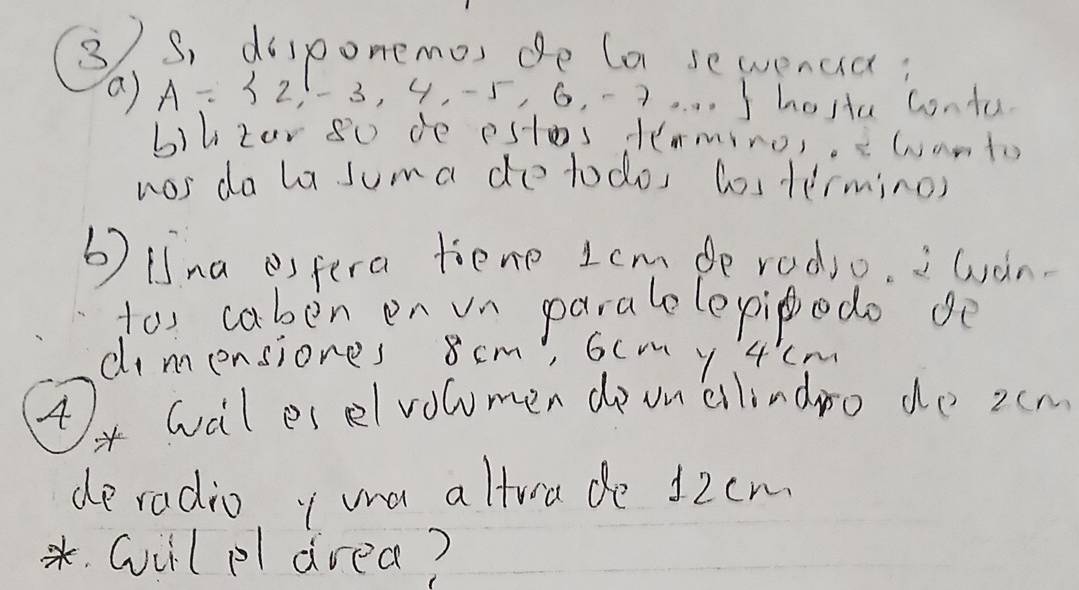 3) Si disponemos de la sewencia:
a) A = {2, -3, 4, -5, 6, -7 ....} hasta conta-
bilizar 80 de estos términos. ¿ Cuanto
nos da la suma de todos los términos
b) Una esfera tiene 1cm de radio. ¿ Cuán-
tos caben en un paralelepipedo de
dimensiones 8cm, 6cm y 4cm
4) * Cuál es el volumen de un cilindro de 2cm
de radio y una altura de 12cm
*. Cuál el área?